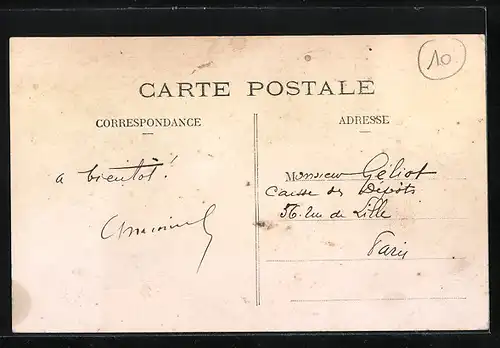 10
CARTE POSTALE
CORRESPONDANCE
ADRESSE
a bientôt !
Monsieur Géliot
Caisse des Dépôts
56. rue de Lille
Paris